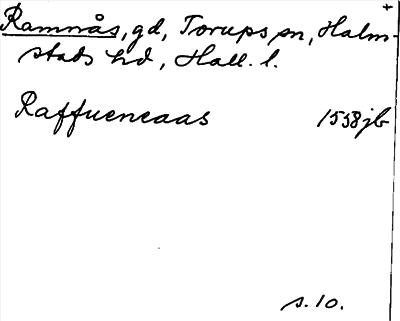 Ramnås, gd, Torups sn, Halm-
stads hd, Hall. l.
Raffueneaas 1558 jb
s. 10.